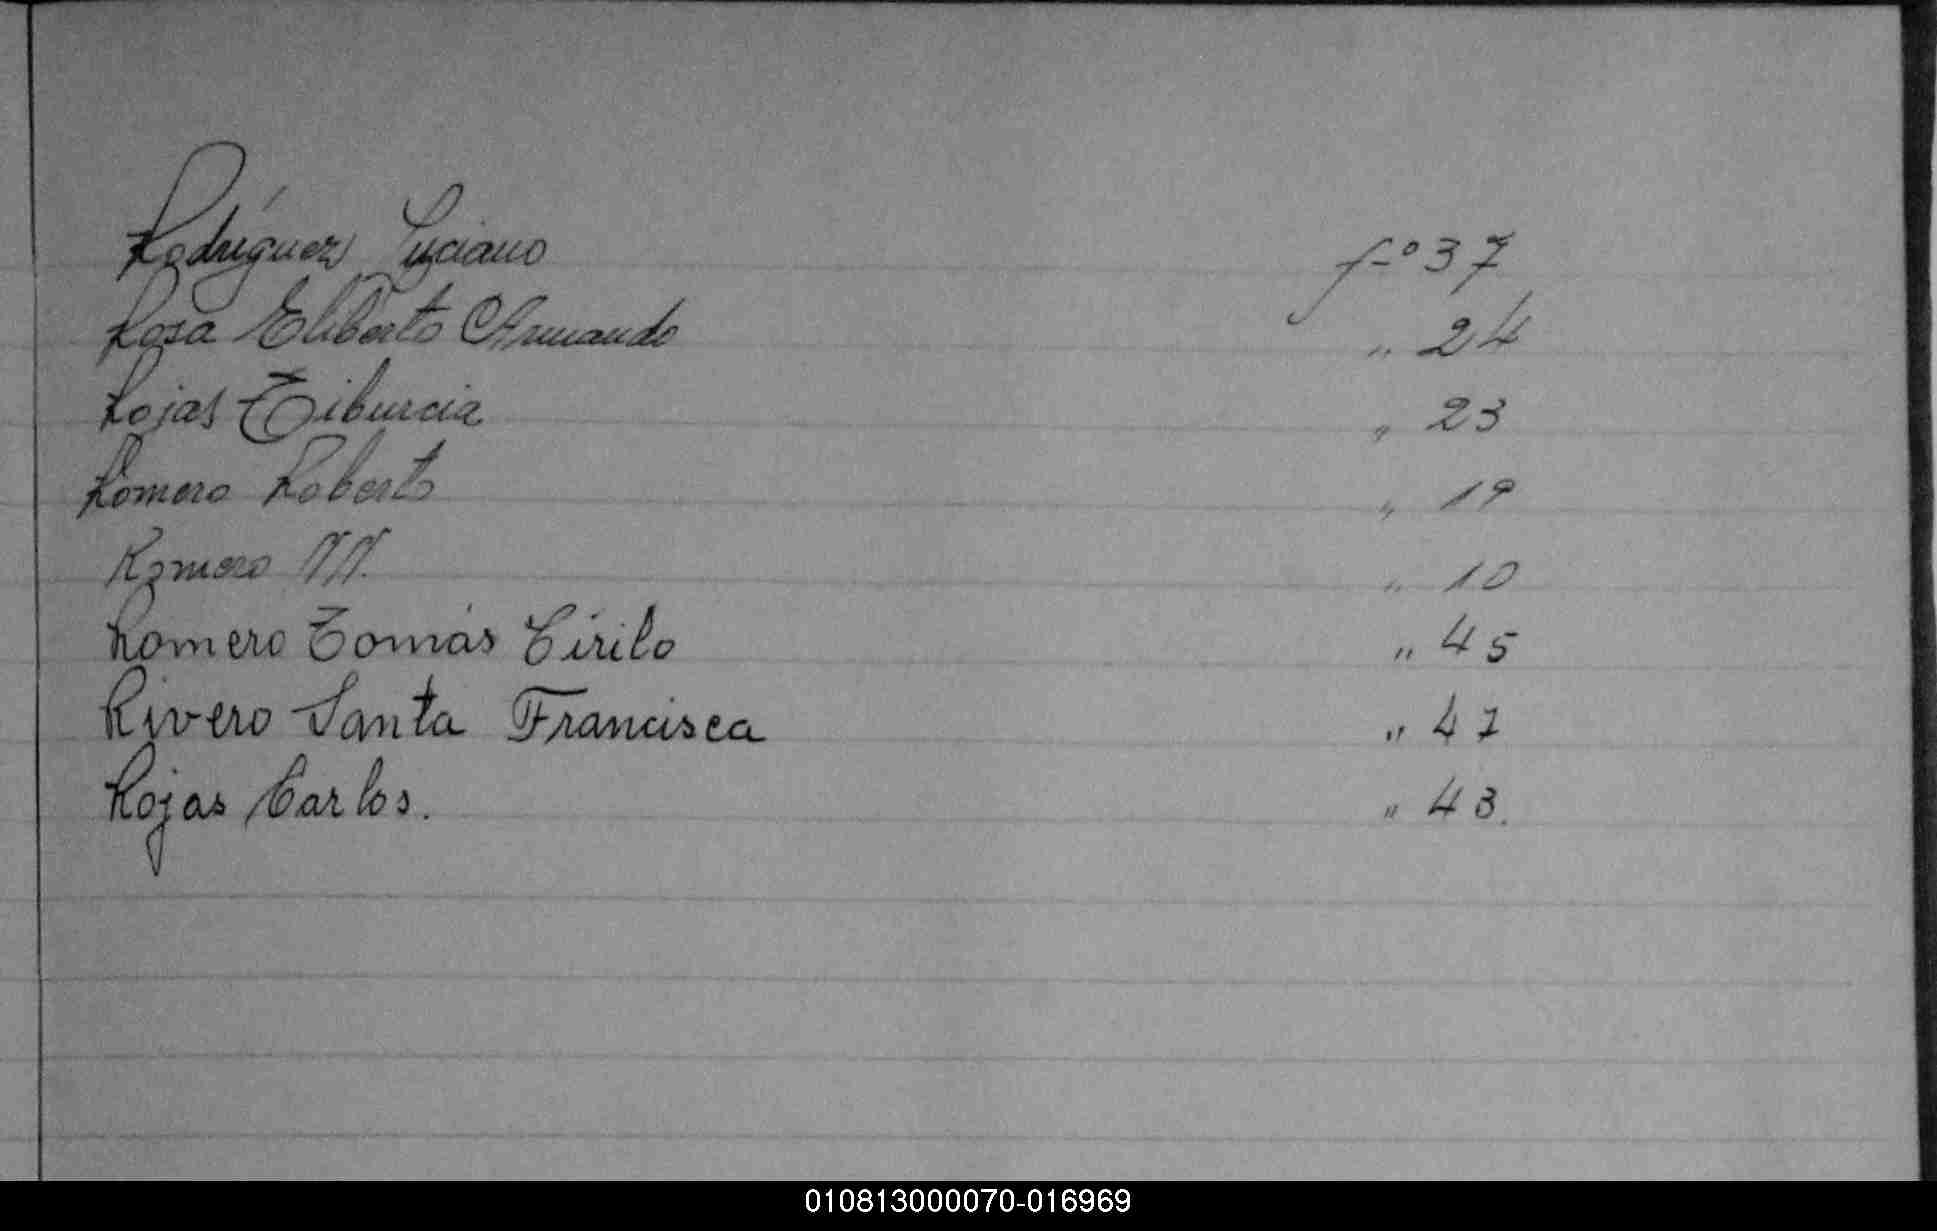 Rodríguez Luciano f-º 37
Rosa Eliberto Armando „ 24
Rojas Tiburcia „ 23
Romero Roberto „ 19
Romero N.N. „ 10
Romero Tomás Cirilo „ 45
Rivero Santa Francisca „ 47
Rojas Carlos. „ 43.
010813000070-016969